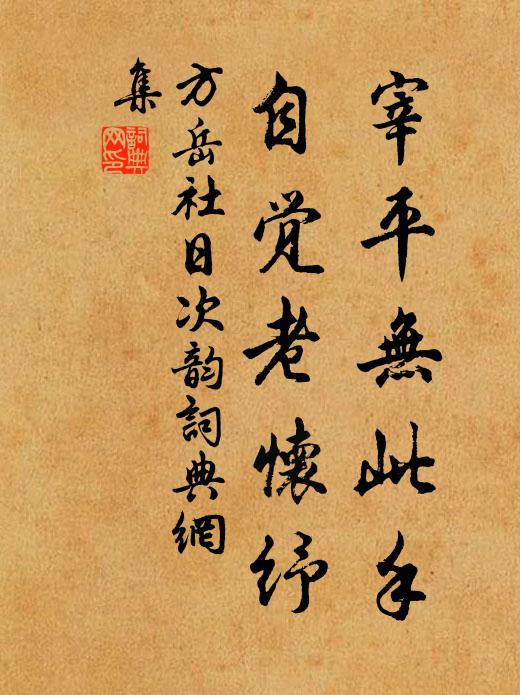 宰平無此手
自覺老懷紓
方岳社日次韵詞典網
集
詞典網印